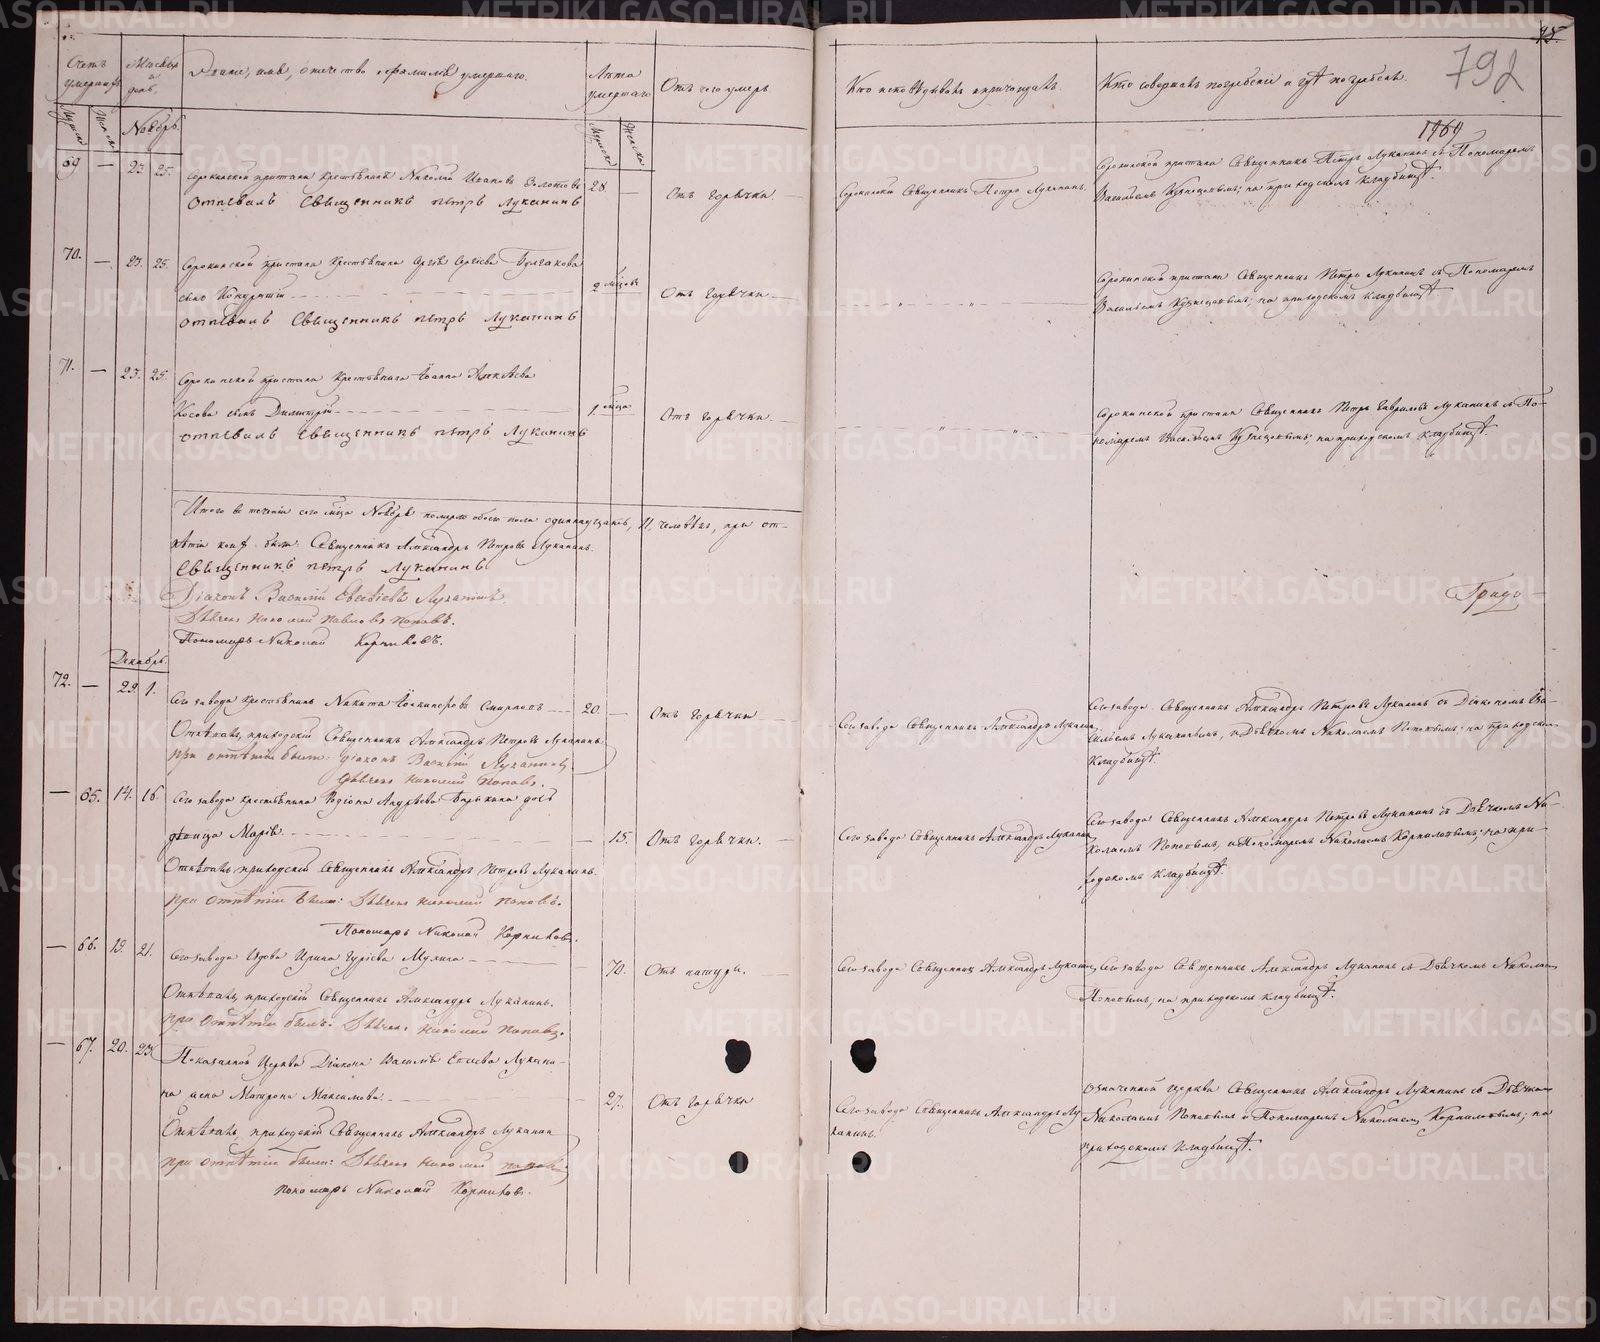 Счетъ умершихъ
Мѣсяцъ и день
Званіе, имя, отчество и фамилія умершаго.
Лѣта умершаго
Отъ чего умеръ
Кто исповѣдывалъ и пріобщалъ.
Кто совершалъ погребеніе и гдѣ погребенъ.
792
Ноябрь
1964
69 — 23 25.
Сорокинской пристани крестьянинъ Николай Ивановъ
28 —
Отъ горячки.
Сорокинской Священникъ Петръ Луканинъ.
Сорокинской пристани Священникъ Петръ Луканинъ съ Пономаремъ
Васильемъ Кузнецовымъ; на приходскомъ кладбищѣ.
Отпевалъ Священникъ петръ Луканинъ
70. — 23. 25.
Сорокинской пристани крестьянина Сергѣя Сергѣева Булгакова
сынъ
2 мѣсяц.
Отъ горячки.
Сорокинской пристани Священникъ Петръ Луканинъ съ Пономаремъ
Васильемъ Кузнецовымъ; на приходскомъ кладбищѣ.
отпевалъ Священникъ петръ Луканинъ
71. — 23. 25.
Сорокинской пристани крестьянина Іоанна Алексѣева
Косова сынъ Димитрій
1 мѣсяца
Отъ горячки.
Сорокинской пристани Священникъ Петръ Гавриловъ Луканинъ съ По-
номаремъ Васильемъ Кузнецовымъ; на приходскомъ кладбищѣ.
отпевалъ Священникъ петръ Луканинъ
Итого въ теченіи сего мѣсяца Ноября померло обоего пола одиннадцать, 11, человѣкъ, при от-
пѣтіи коихъ были: Священникъ Александръ Петровъ Луканинъ.
Священникъ петръ Луканинъ
Діаконъ Василій Евсевіевъ Луканинъ.
Дьячекъ Николай Павловъ Поповъ.
Пономарь Николай Корниловъ.
Декабрь.
72. — 29. 1.
Сего завода крестьянинъ Никита Смирновъ
20. —
Отъ горячки
Сего завода Священникъ Александръ Луканинъ
Сего завода Священникъ Александръ Петровъ Луканинъ съ Діакономъ Ва-
сильемъ Луканинымъ, и Дьячкомъ Николаемъ Поповымъ; на приходскомъ
кладбищѣ.
Отпѣвалъ, приходскій Священникъ Александръ Петровъ Луканинъ.
при отпѣтіи были: діаконъ Василій Луканинъ,
Дьячекъ Николай Поповъ.
— 65. 14. 16.
Сего завода крестьянина Родіона Андреева дочь
дѣвица Марія.
— 15.
Отъ горячки.
Сего завода Священникъ Александръ Луканинъ
Сего завода Священникъ Александръ Петровъ Луканинъ съ Дьячкомъ Ни-
колаемъ Поповымъ, и Пономаремъ Николаемъ Корниловымъ; на при-
ходскомъ кладбищѣ.
Отпѣвалъ, приходскій Священникъ Александръ Петровъ Луканинъ.
при отпѣтіи были: Дьячекъ Николай Поповъ.
Пономарь Николай Корниловъ.
— 66. 19. 21.
Сего завода Вдова Ирина Гуріева
70.
Отъ натуги.
Сего завода Священникъ Александръ Луканинъ
Сего завода Священникъ Александръ Луканинъ съ Дьячкомъ Николаемъ
Поповымъ, на приходскомъ кладбищѣ.
Отпѣвалъ, приходскій Священникъ Александръ Луканинъ.
при отпѣтіи былъ: Дьячекъ Николай Поповъ.
— 67. 20. 23.
Показанной Церкви Діакона Василія Лукани-
на жена Матрона Максимова.
27.
Отъ горячки
Сего завода Священникъ Александръ Лу-
канинъ.
Означенной церкви Священникъ Александръ Луканинъ съ Дьячкомъ
Николаемъ Поповымъ и Пономаремъ Николаемъ Корниловымъ; на
приходскомъ кладбищѣ.
Отпѣвалъ, приходскій Священникъ Александръ Луканинъ
при отпѣтіи были: Дьячекъ Николай Поповъ
Пономарь Николай Корниловъ.
METRIKI.GASO-URAL.RU